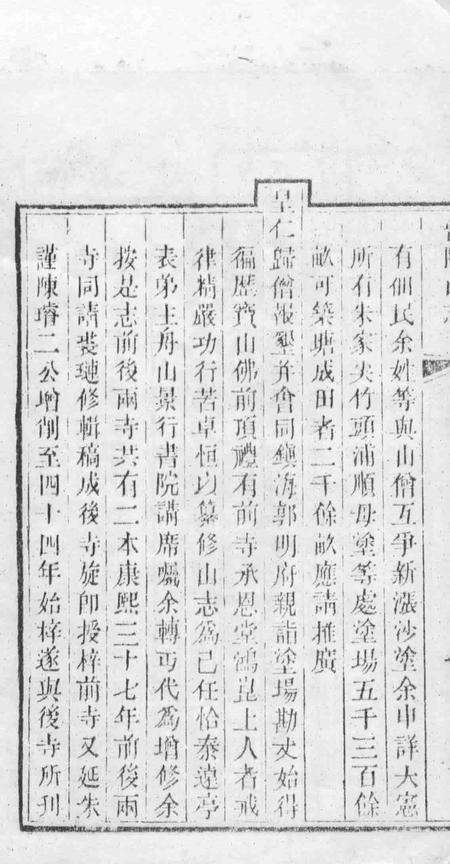 有佃民余姓等與山僧互爭新漲沙塗余申詳大憲
所有朱家尖竹頭浦順母塗等處塗場五千三百餘
畝可築塘成田者二千餘畝應請推廣
皇仁歸僧報墾并會同鎮海郭明府親詣塗場勘丈始得
徧歷寶山佛前頂禮有前寺承恩堂鴻崑上人者戒
律精嚴功行苦卓恒以纂修山志為己任恰秦遠亭
表弟主舟山景行書院講席囑余轉丐代為增修余
按是志前後兩寺共有二本康熙三十七年前後兩
寺同請裘璉修輯稿成後寺旋即授梓前寺又延朱
謹陳璿二公增削至四十四年始梓遂與後寺所刊